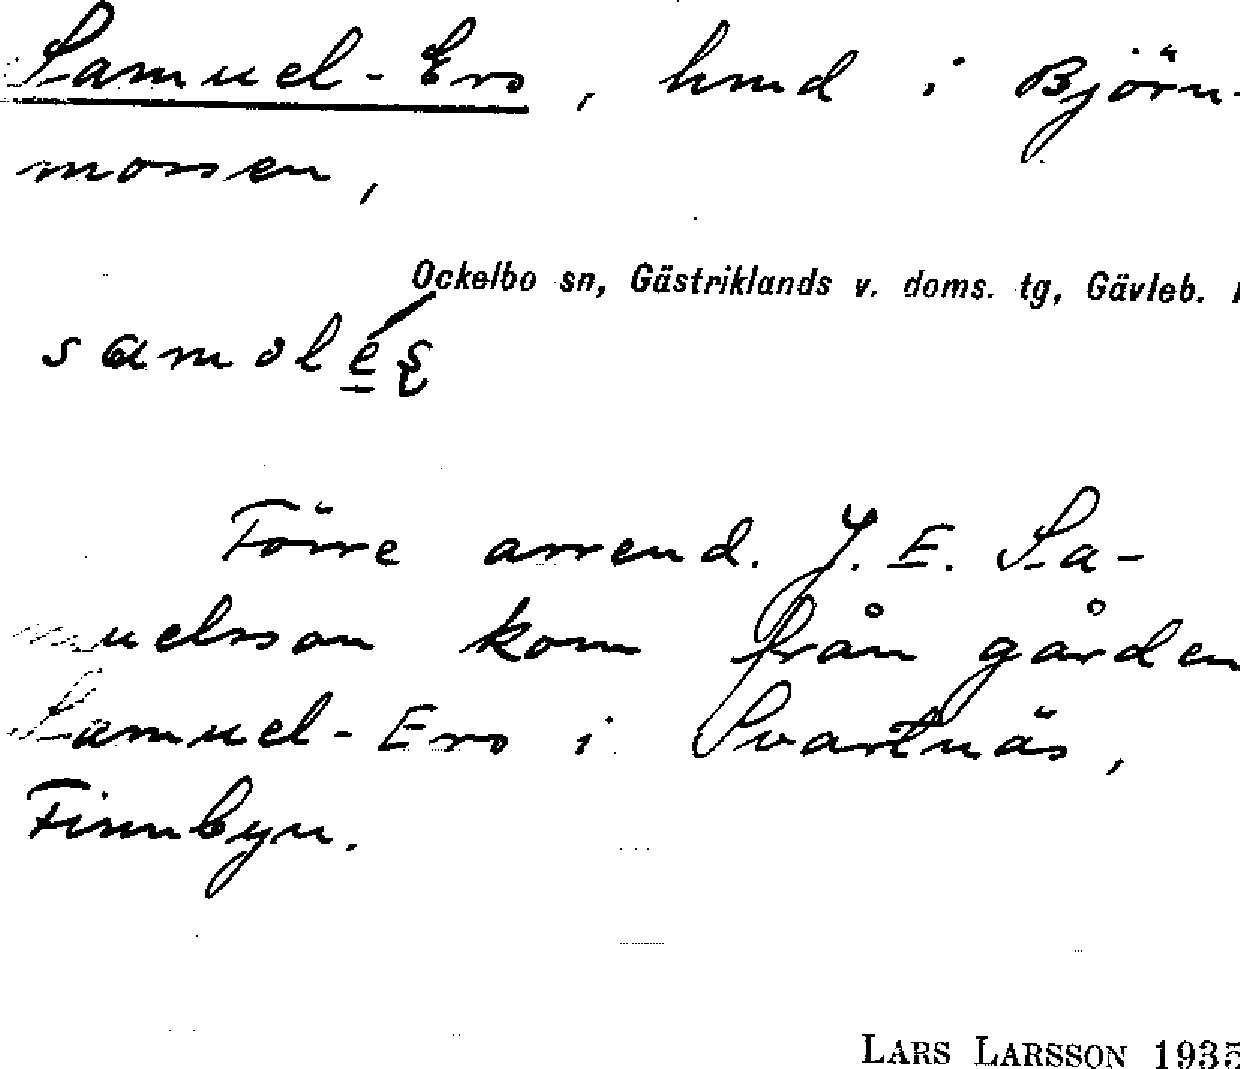 Samuel-Ers, hmd i Björn-
mossen,
Ockelbo sn, Gästriklands v. doms. tg, Gävleb.
samoles
Förre arrend. J. E. Sa-
muelsson kom från gården
Samuel-Ers i Svartnäs,
Finnbyn.
LARS LARSSON 1935